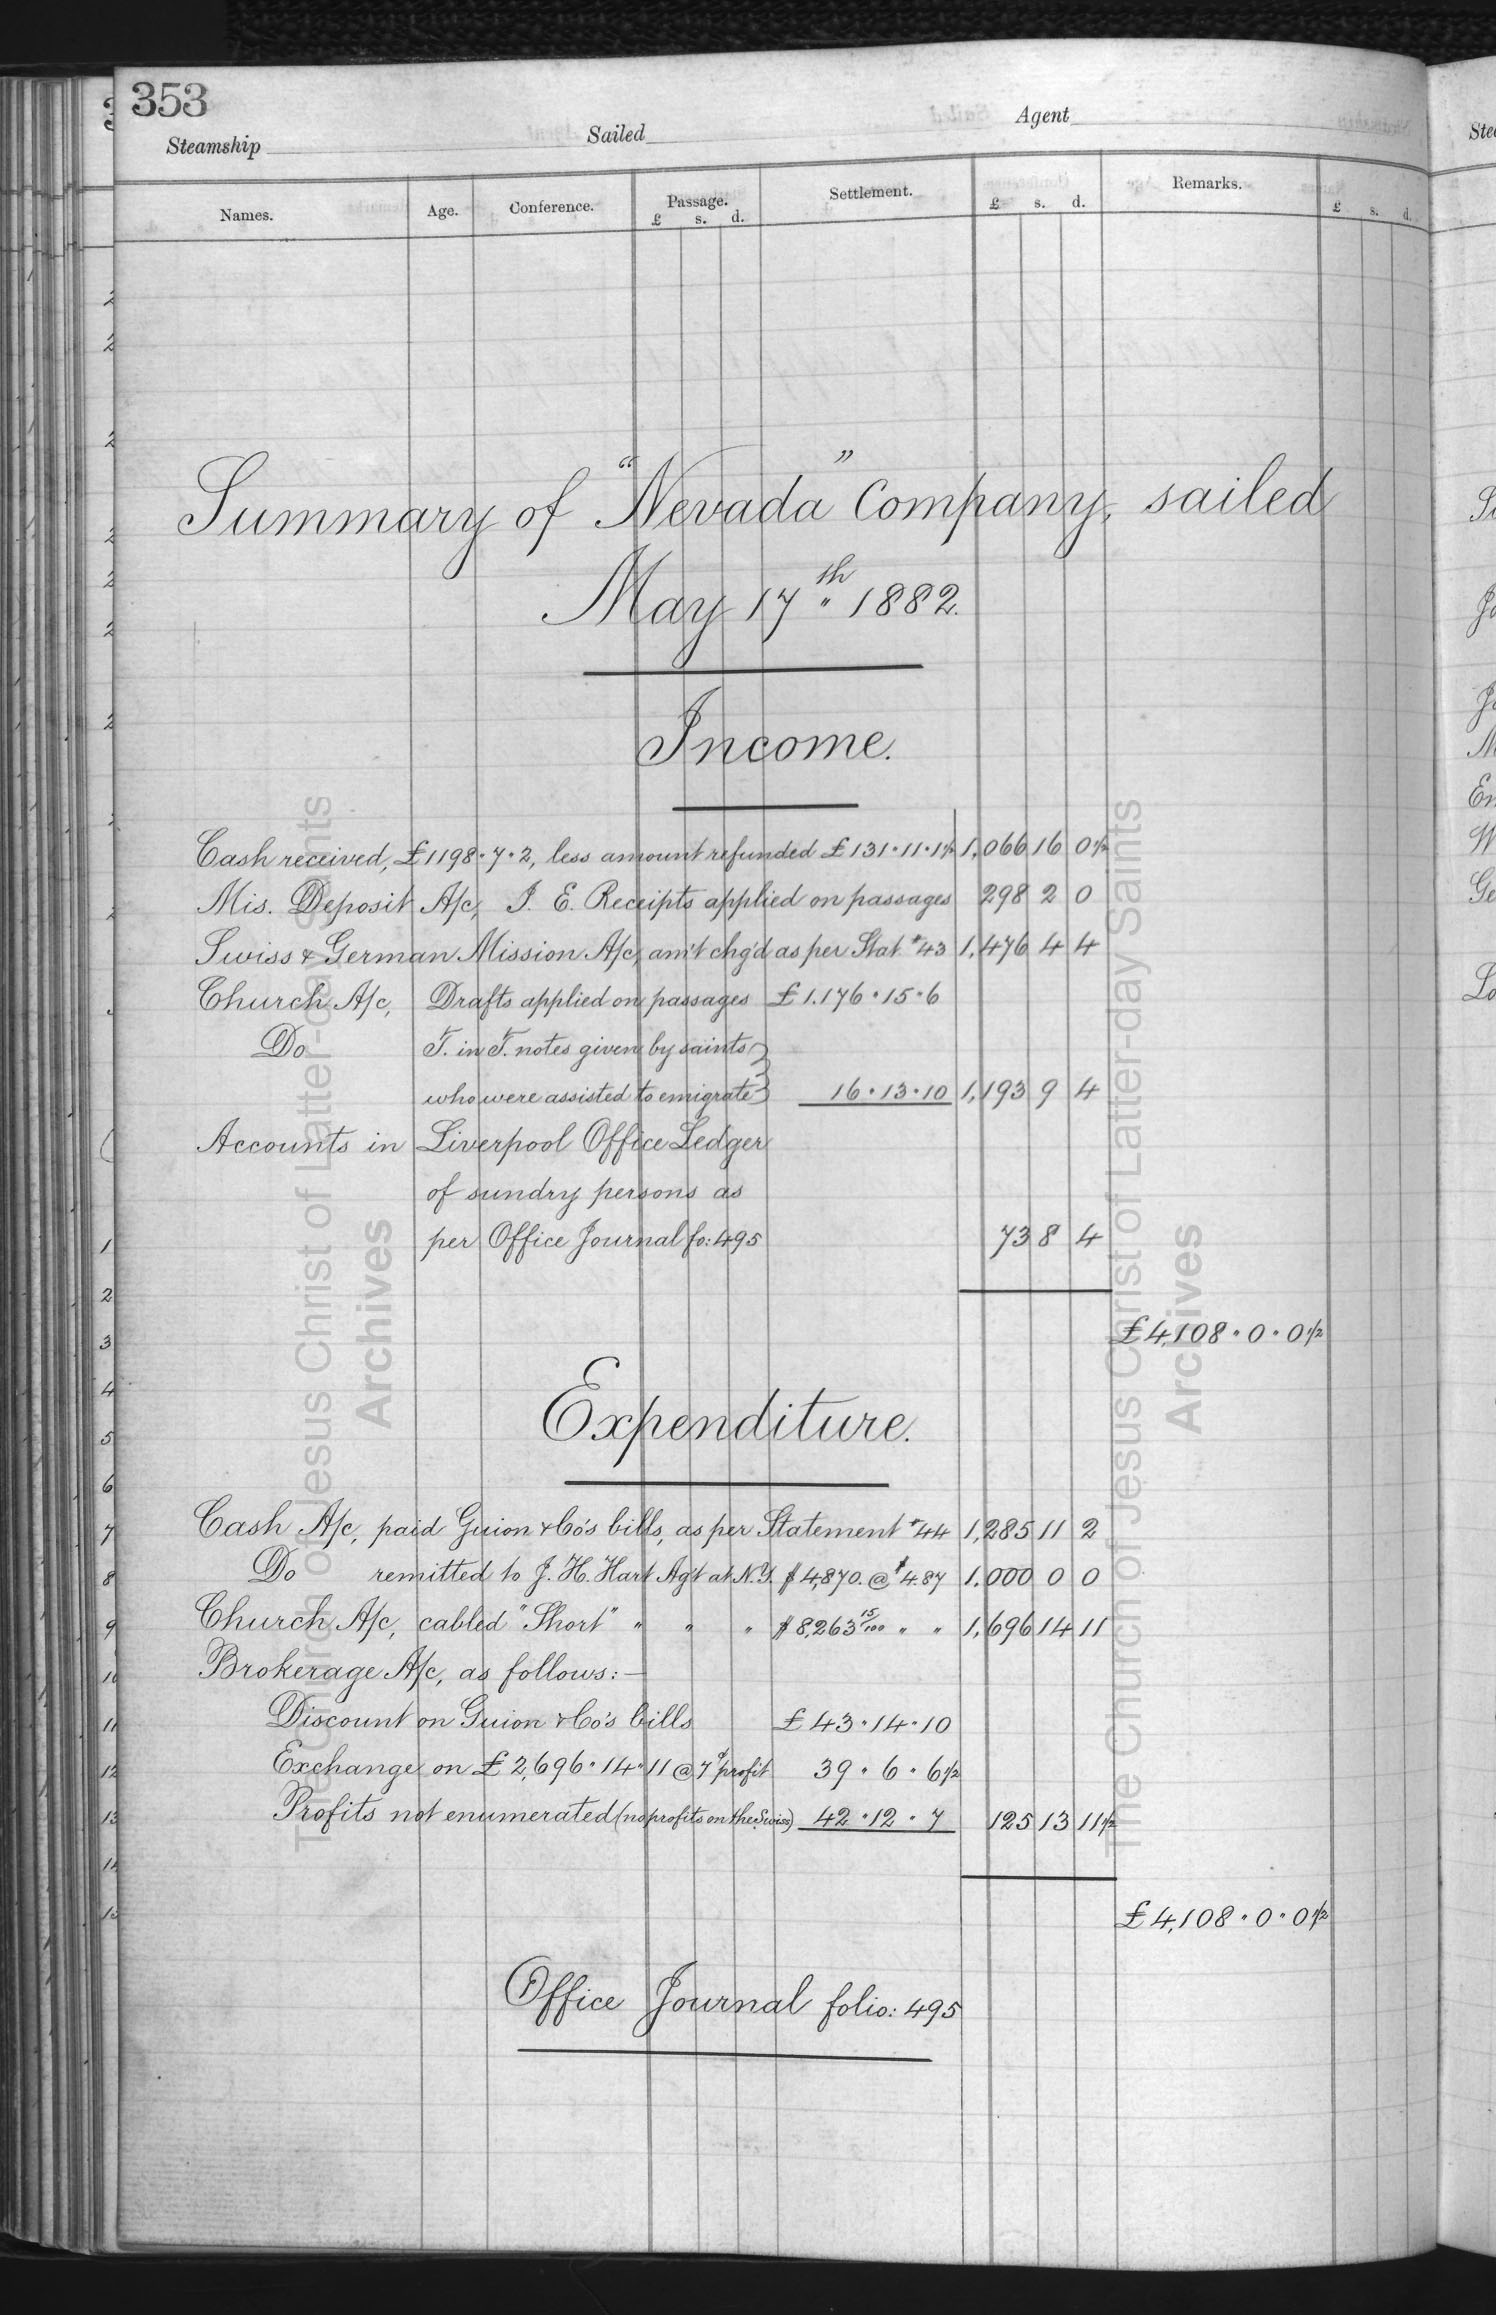 353
Steamship Sailed Agent
Names. Age. Conference. Passage. Settlement. £ s. d. Remarks. £ s. d.
£ s. d.
Summary of "Nevada" Company, sailed
May 17th 1882.
Income.
Cash received, £1198·7·2, less amount refunded £131·11·1½ 1,066 16 0½
Mis. Deposit A/c, I. E. Receipts applied on passages 298 2 0
Swiss & German Mission A/c, am't chg'd as per Stat. #43 1,476 4 4
Church A/c, Drafts applied on passages £1.176·15·6
Do T. in T. notes given by saints
who were assisted to emigrate 16·13·10 1,193 9 4
Accounts in Liverpool Office Ledger
of sundry persons as
per Office Journal fo: 495 73 8 4
£4,108·0·0½
Expenditure.
Cash A/c, paid Guion & Co's bills, as per Statement #44 1,285 11 2
Do remitted to J. H. Hart Ag't at N.Y. $4,870. @ $4.87 1.000 0 0
Church A/c, cabled "Short" " " " $8,263 15/100 " " 1,696 14 11
Brokerage A/c, as follows:—
Discount on Guion & Co's bills £43·14·10
Exchange on £2,696·14·11 @ 7d profit 39·6·6½
Profits not enumerated (no profits on the Swiss) 42·12·7 125 13 11½
£4,108·0·0½
Office Journal folio: 495
The Church of Jesus Christ of Latter-day Saints
Archives
The Church of Jesus Christ of Latter-day Saints
Archives
1
2
3
4
5
6
7
8
9
10
11
12
13
14